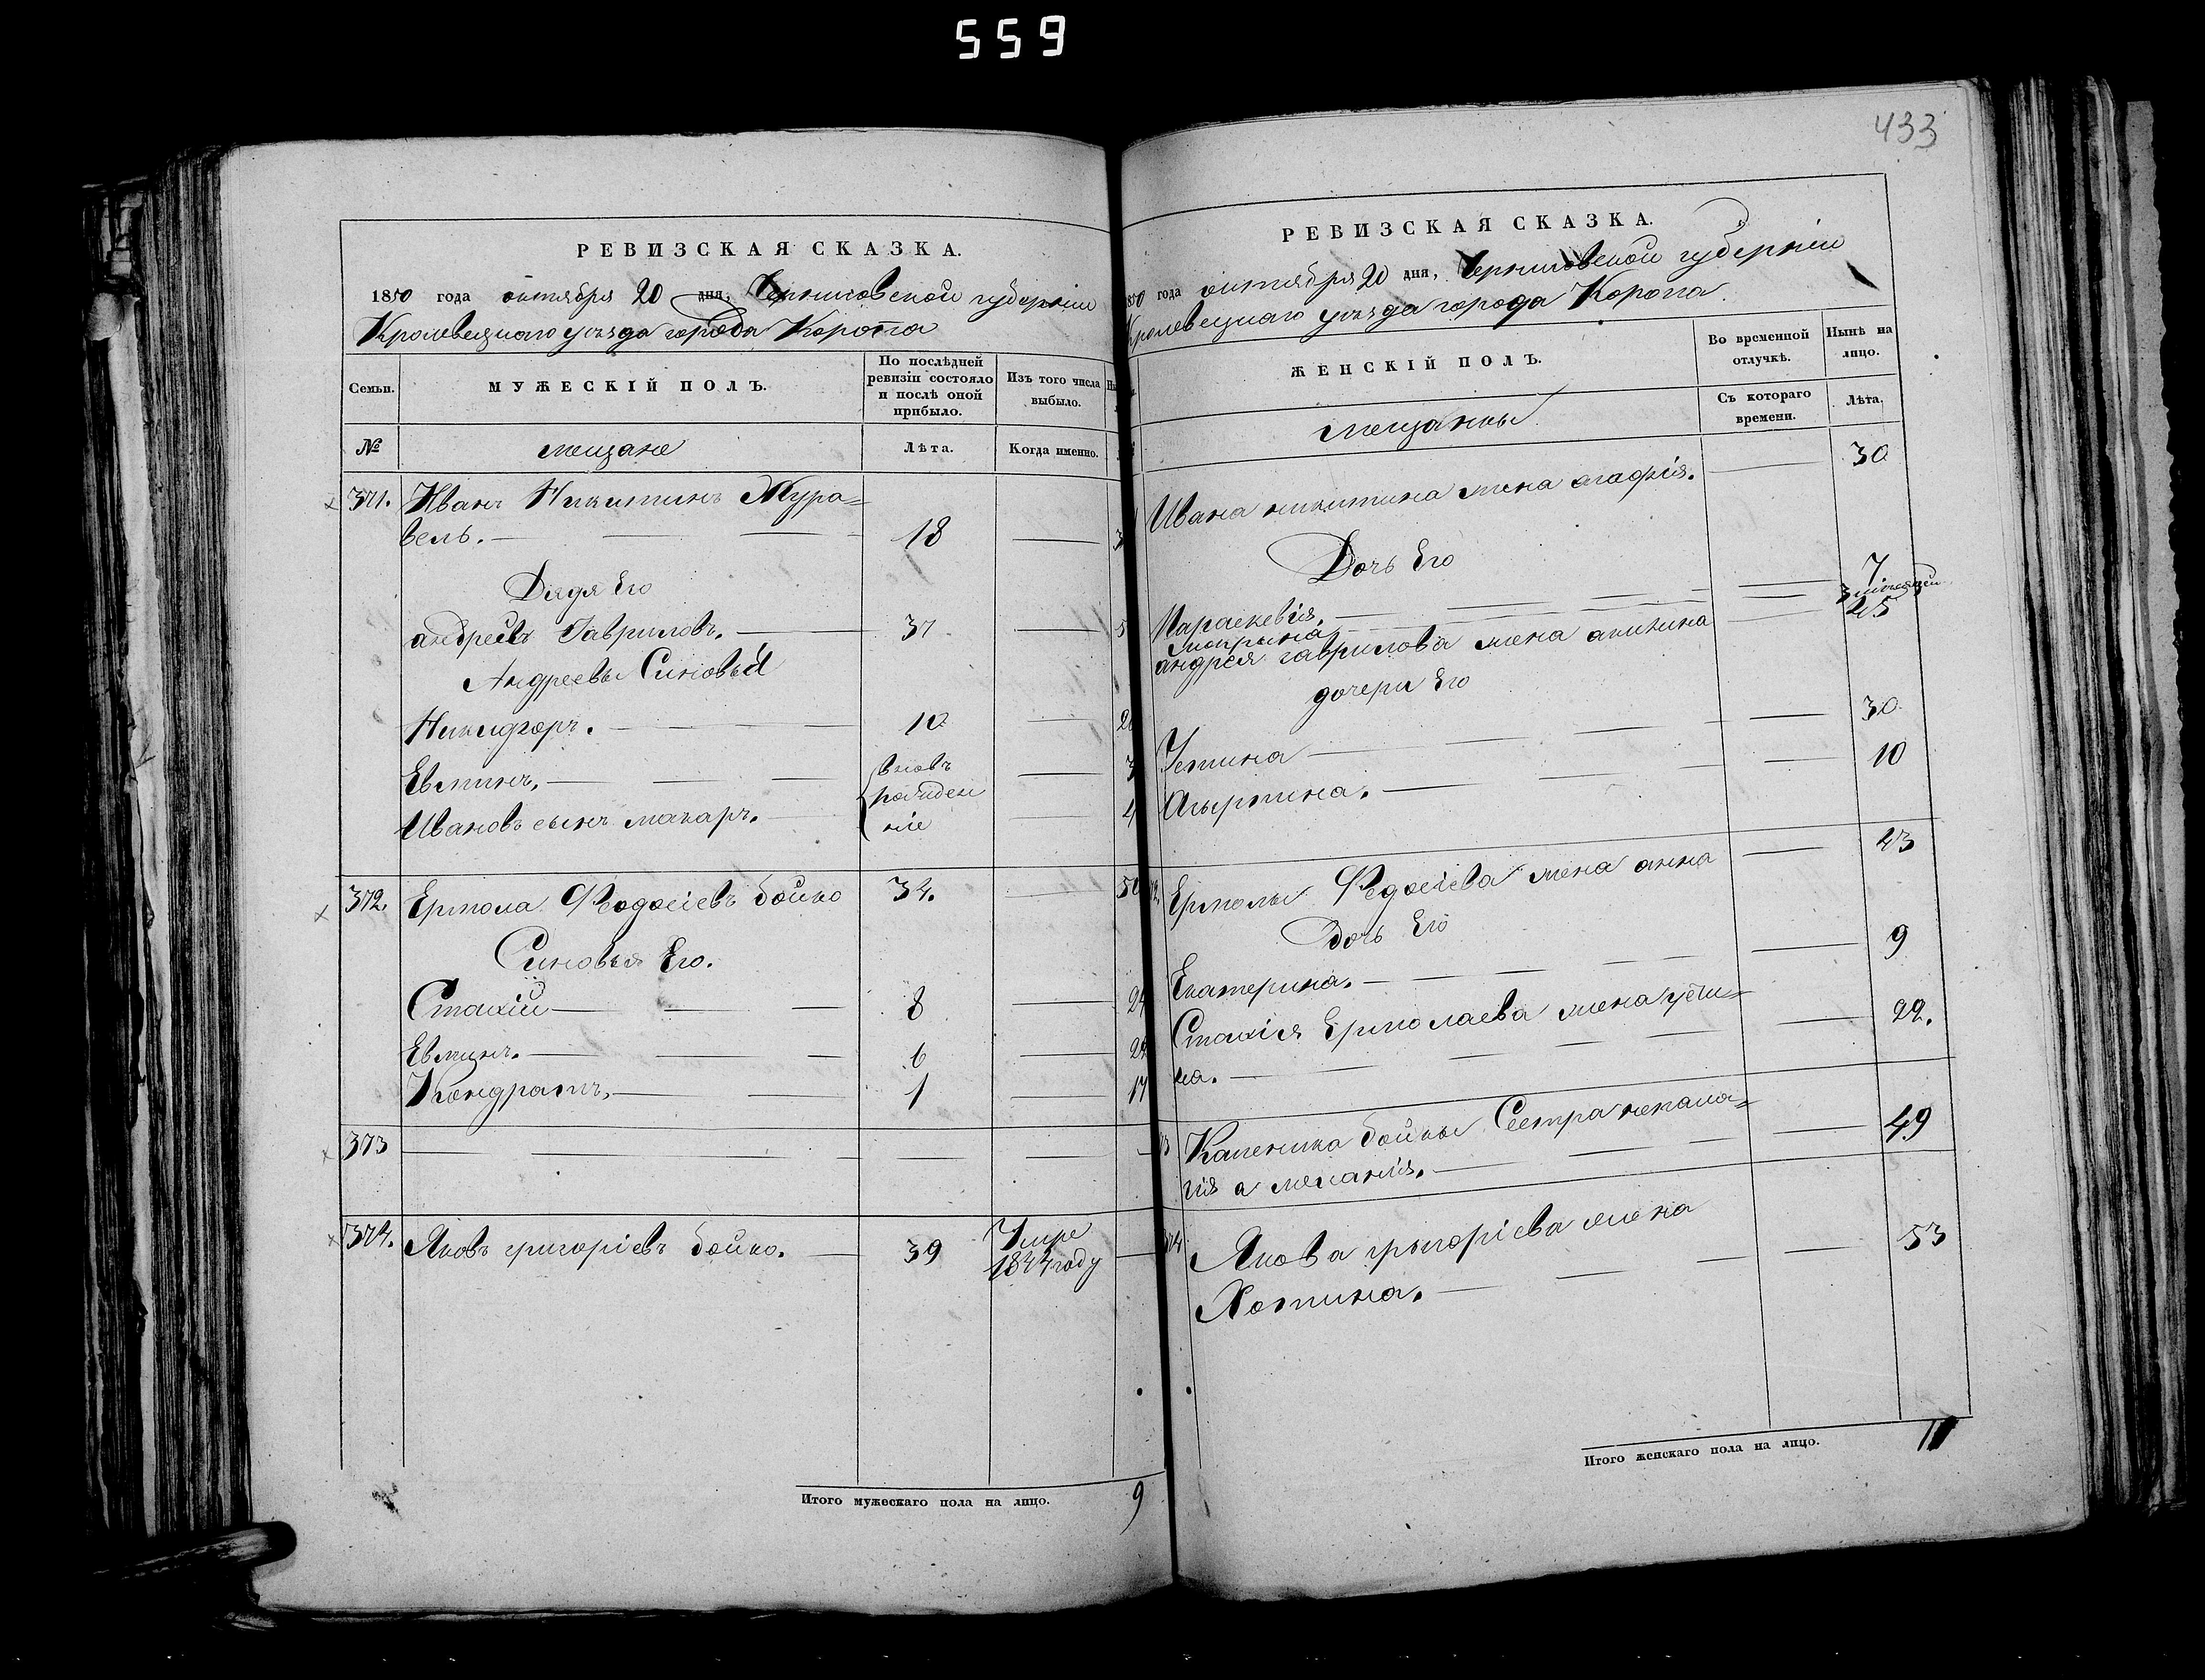 559
433
РЕВИЗСКАЯ СКАЗКА.
1850 года октября 20 дня, Черниговской губерніи
Кролевецкаго уезда города Коропа
Семьи. МУЖЕСКІЙ ПОЛЪ. По послѣдней ревизіи состояло и послѣ оной прибыло. Изъ того числа выбыло.
№ мещане Лѣта. Когда именно.
371. Иванъ Никитинъ Мура=
вель. 18
Дядя Его
андреевъ Гавриловъ. 37
Андреевы Синовья
Никифоръ. 10
Евтихъ. вновь
рожден
ніе
Ивановъ сынъ макаръ.
372. Ермола Федосіевъ бойко 34. 50
Синовья Его.
Стахій 8
Евтихъ. 6
Кондратъ. 1 17
373
374. Яковъ григоріевъ бойко. 39 Умре
1844 году
Итого мужескаго пола на лицо. 9
РЕВИЗСКАЯ СКАЗКА.
1850 года октября 20 дня, Черниговской губерніи
Кролевецкаго уезда города Коропа.
ЖЕНСКІЙ ПОЛЪ. Во временной отлучкѣ. Нынѣ на лицо.
мещанки Съ котораго времени. Лѣта.
Ивана никитина жена агафія. 30
Дочь Его
Параскевія. 7
андрея гаврилова жена акилина 45
дочери Его
Устина 30
Агрипина. 10
Ермолы Федосіева жена анна 43
Дочь Его
Екатерина. 9
Стахія Ермолаева жена усти=
на. 22.
бойки Сестра
мелания. 49
374 Якова григоріева жена
Хотина. 53
Итого женскаго пола на лицо.